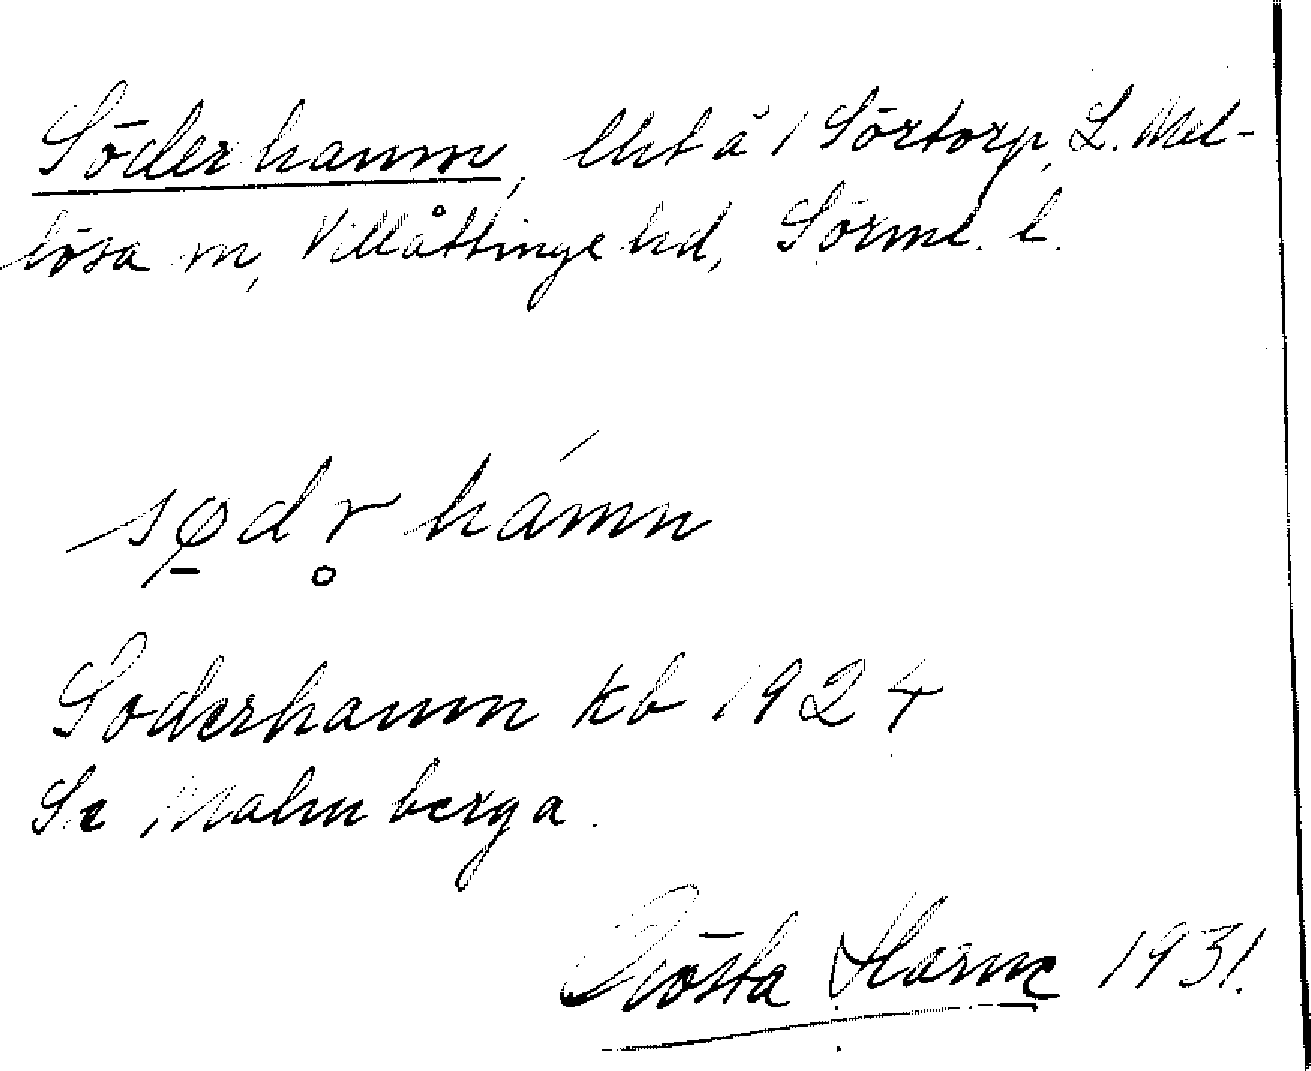 Söderhamn, lht å 1 Sörtorp, L. Mel-
lösa sn, Villåttinge hd, Sörml. l.
sød̥r hámn
Söderhamn kb 1924
Se Malmberga.
Gösta Harne 1931.